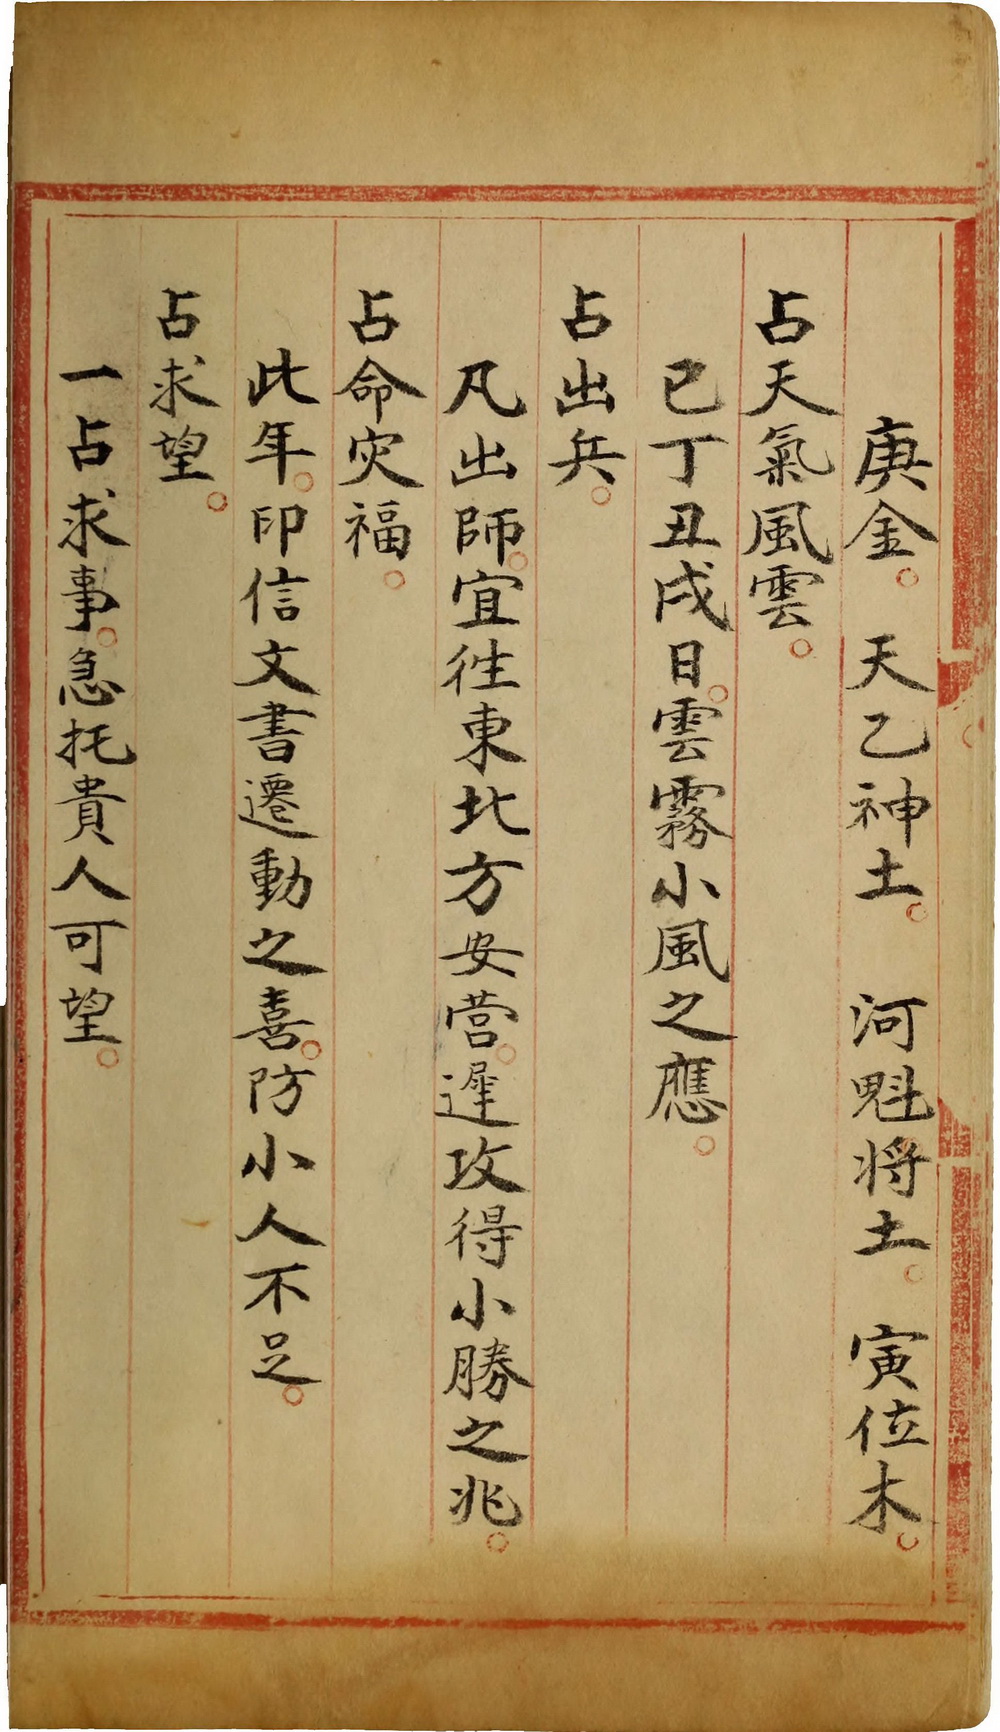 庚金。天乙神土。河魁将土。寅位木。
占天氣風雲。
已丁丑戌日。雲霧小風之應。
占出兵。
凡出師。宜徃東北方安营。遲攻得小勝之兆。
占命灾福。
此年。印信文書遷動之喜。防小人不足。
占求望。
一占求事。急托貴人可望。